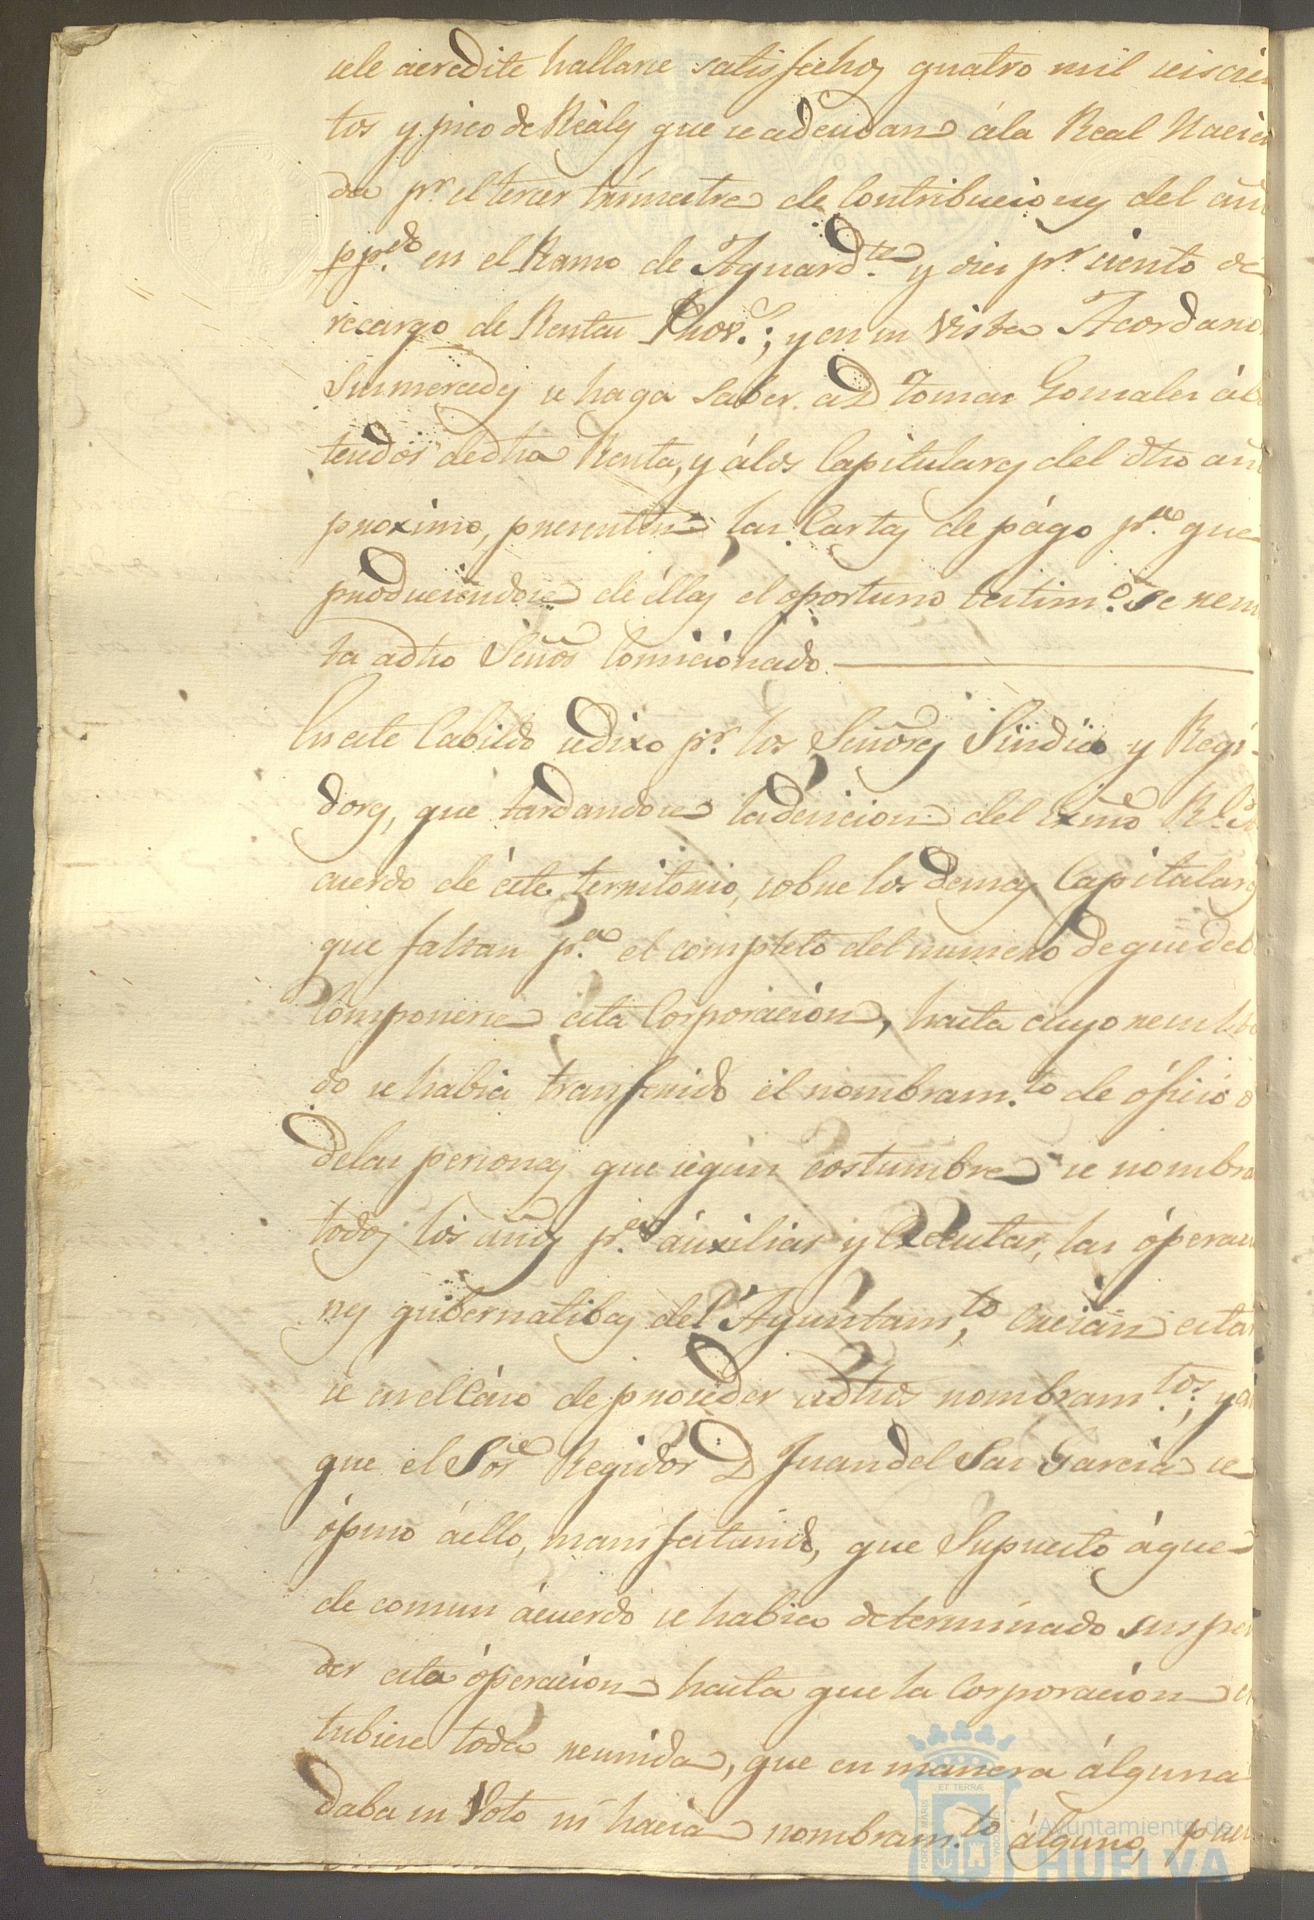 sele acredite hallarse satisfechos quatro mil seiscien
tos y pico de Reales que se adeudan á la Real Hacien
da pr. el tercer trimestre de Contribuciones del año
pp.do en el Ramo de Aguard.te y diez pr. ciento de
recargo de Rentas Prov.s; y en su vista Acordaron
Sus mercedes se haga saber a D Tomas Gonzales
tendor de dha Renta, y á los Capitulares del dho año
proximo, presenten las Cartas de págo pr.a que
produciendose de éllas el oportuno testim.o Se remi
ta a dho Señor Comicionado.
En este Cabildo se dixo pr. los Señores Sindico y Regi-
dores, que tardandose la decicion del Exmo Rl. A
cuerdo de éste territorio, sobre los demas Capitulares
que faltan p.a el completo del numero de que debe
Componerse esta Corporacion, hasta cuyo
do se habia transferido él nombram.to de óficio
de las personas que según costumbre se nombran
todos los años p.a áuxiliar y Executar, las óperacio
nes gubernatibas del Ayuntam.to, Creian estar
se en el Cáso de proceder a dhos nombram.tos; y
que el Sor Regidor D Juan del Sas Garcia se
ópuso áello, manifestando, que Supuesto áque
de comun ácuerdo se habia determinado suspen
der esta óperacion hasta que la Corporacion es
tubiese toda reunida, que en manera álguna
daba su Voto ni hacia nombram.to álguno, pues
ET TERRÆ
Ayuntamiento de
HUELVA